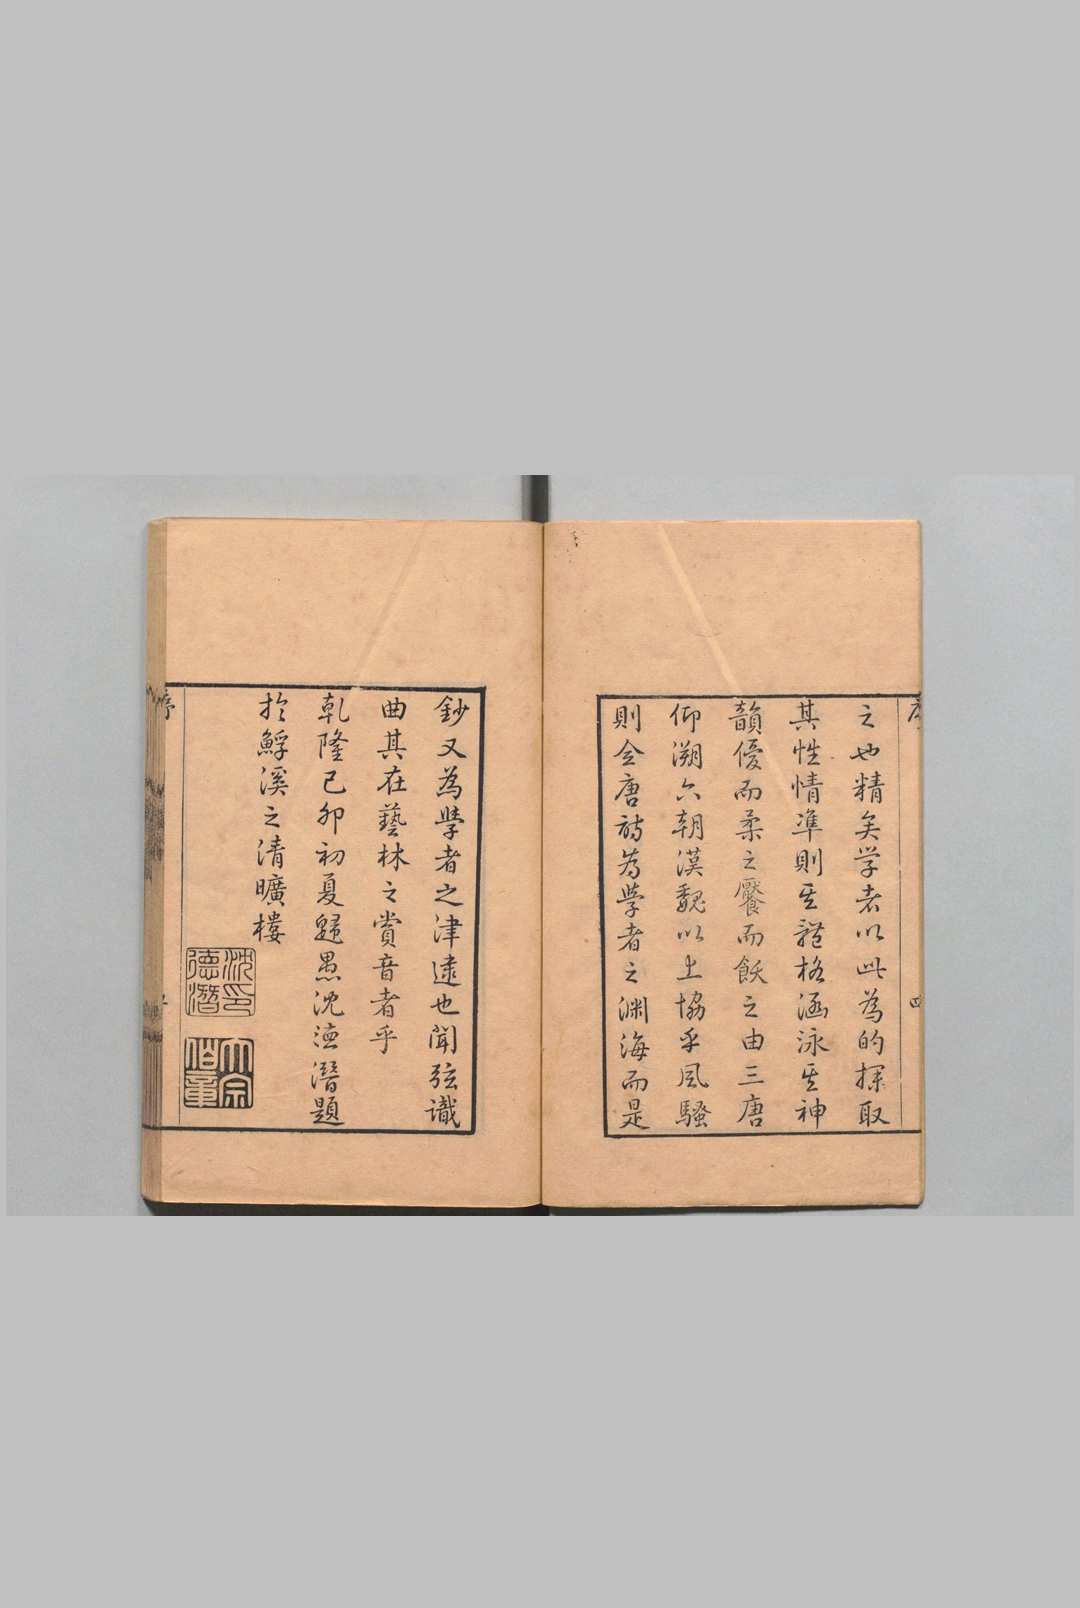 之也精矣学者以此為的探取
其性情準則其體格涵泳其神
韻優而柔之饜而飫之由三唐
仰溯六朝漢魏以上協乎風騷
則全唐詩為學者之淵海而是
四
鈔又為學者之津逮也聞弦識
曲其在藝林之賞音者乎
乾隆己卯初夏歸愚沈德潛題
於鮮溪之清曠樓
沈印德潛
序